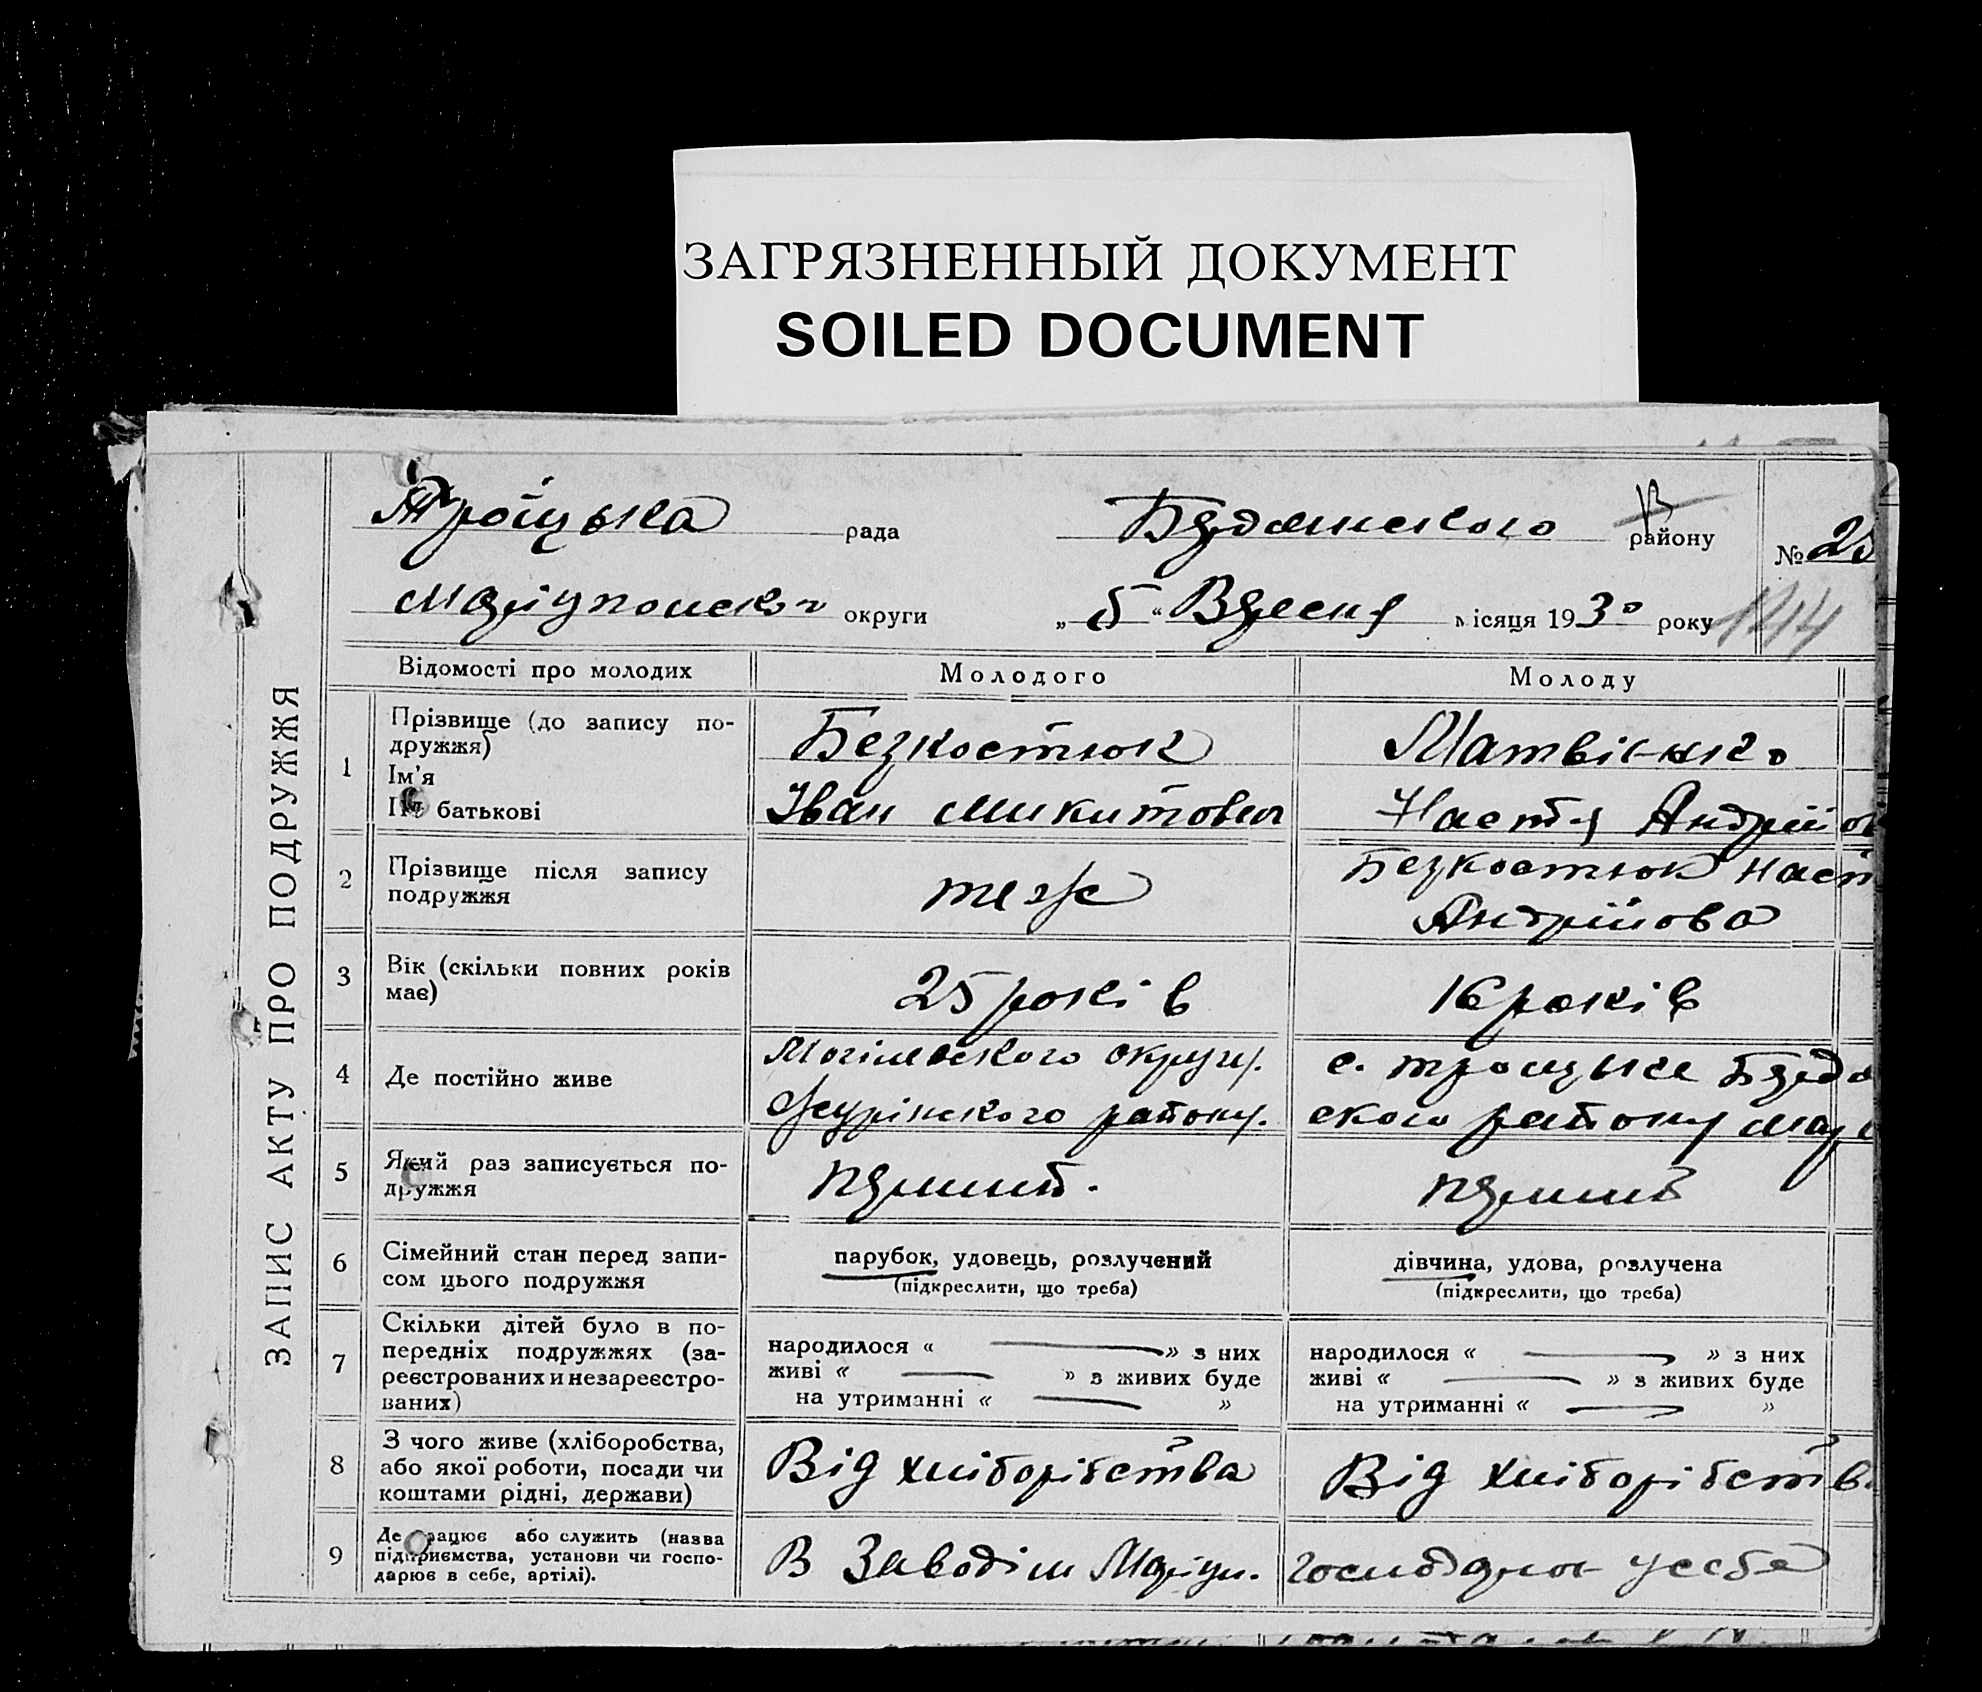 ЗАГРЯЗНЕННЫЙ ДОКУМЕНТ
SOILED DOCUMENT
ЗАПИС АКТУ ПРО ПОДРУЖЖЯ
Троїцька рада Бердянського району №
округи „ 5 “ Вересня місяця 1930 року 144
Відомості про молодих Молодого Молоду
1 Прізвище (до запису по-
дружжя) Безкостюк Матвієнко
Ім'я
По батькові Іван Микитович Настя Андрійов
2 Прізвище після запису
подружжя теж Безкостюк Наст
Андрійова
3 Вік (скільки повних років
має) 25 років 16 років
4 Де постійно живе Могілевського округу.
Журінського району. ського району
с. Троїцьке Бердя
5 Який раз записується по-
дружжя перший. перший
6 Сімейний стан перед запи-
сом цього подружжя
парубок, удовець, розлучений
(підкреслити, що треба)
дівчина, удова, розлучена
(підкреслити, що треба)
7 Скільки дітей було в по-
передніх подружжях (за-
реєстрованих и незареєстро-
ваних)
народилося « » з них
живі « » з живих буде
на утриманні « »
народилося « » з них
живі « » з живих буде
на утриманні « »
8 З чого живе (хліборобства,
або якої роботи, посади чи
коштами рідні, держави)
Від хліборібства Від хліборібств
9 Де працює або служить (назва
підприємства, установи чи госпо-
дарює в себе, артілі).
В Заводі